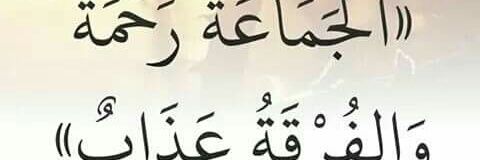 «الجَمَاعَةُ رَحْمَةٌ
وَالفُرْقَةُ عَذَابٌ»